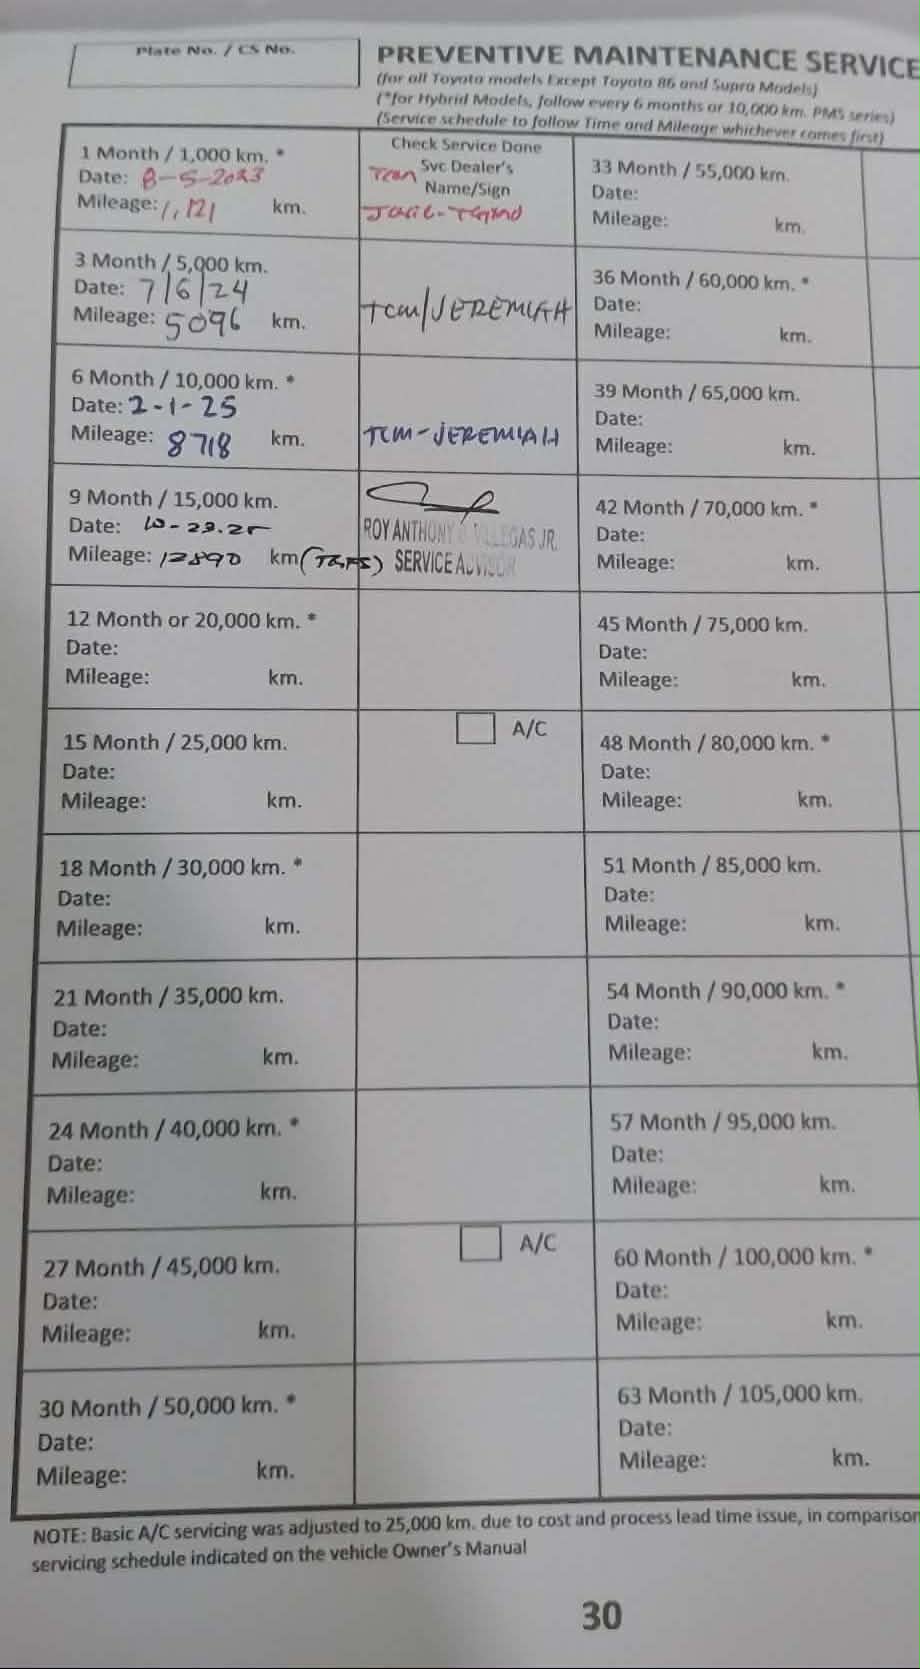 Plate No. / CS No.
PREVENTIVE MAINTENANCE SERVICE
(for all Toyota models Except Toyota 86 and Supra Models)
(*for Hybrid Models, follow every 6 months or 10,000 km. PMS series)
(Service schedule to follow Time and Mileage whichever comes first)
1 Month / 1,000 km. *
Date: 8-5-2023
Mileage: 1,121 km.
Check Service Done
Svc Dealer's
Name/Sign
3 Month / 5,000 km.
Date: 7/6/24
Mileage: 5096 km.
TCM/JEREMIAH
6 Month / 10,000 km. *
Date: 2-1-25
Mileage: 8718 km.
TCM-JEREMIAH
9 Month / 15,000 km.
Date: 10-29-25
Mileage: 12890 km
ROY ANTHONY VILLEGAS JR.
SERVICE ADVISOR
12 Month or 20,000 km. *
Date:
Mileage: km.
15 Month / 25,000 km.
Date:
Mileage: km.
A/C
18 Month / 30,000 km. *
Date:
Mileage: km.
21 Month / 35,000 km.
Date:
Mileage: km.
24 Month / 40,000 km. *
Date:
Mileage: km.
27 Month / 45,000 km.
Date:
Mileage: km.
A/C
30 Month / 50,000 km. *
Date:
Mileage: km.
33 Month / 55,000 km.
Date:
Mileage: km.
36 Month / 60,000 km. *
Date:
Mileage: km.
39 Month / 65,000 km.
Date:
Mileage: km.
42 Month / 70,000 km. *
Date:
Mileage: km.
45 Month / 75,000 km.
Date:
Mileage: km.
48 Month / 80,000 km. *
Date:
Mileage: km.
51 Month / 85,000 km.
Date:
Mileage: km.
54 Month / 90,000 km. *
Date:
Mileage: km.
57 Month / 95,000 km.
Date:
Mileage: km.
60 Month / 100,000 km. *
Date:
Mileage: km.
63 Month / 105,000 km.
Date:
Mileage: km.
NOTE: Basic A/C servicing was adjusted to 25,000 km. due to cost and process lead time issue, in comparison
servicing schedule indicated on the vehicle Owner's Manual
30